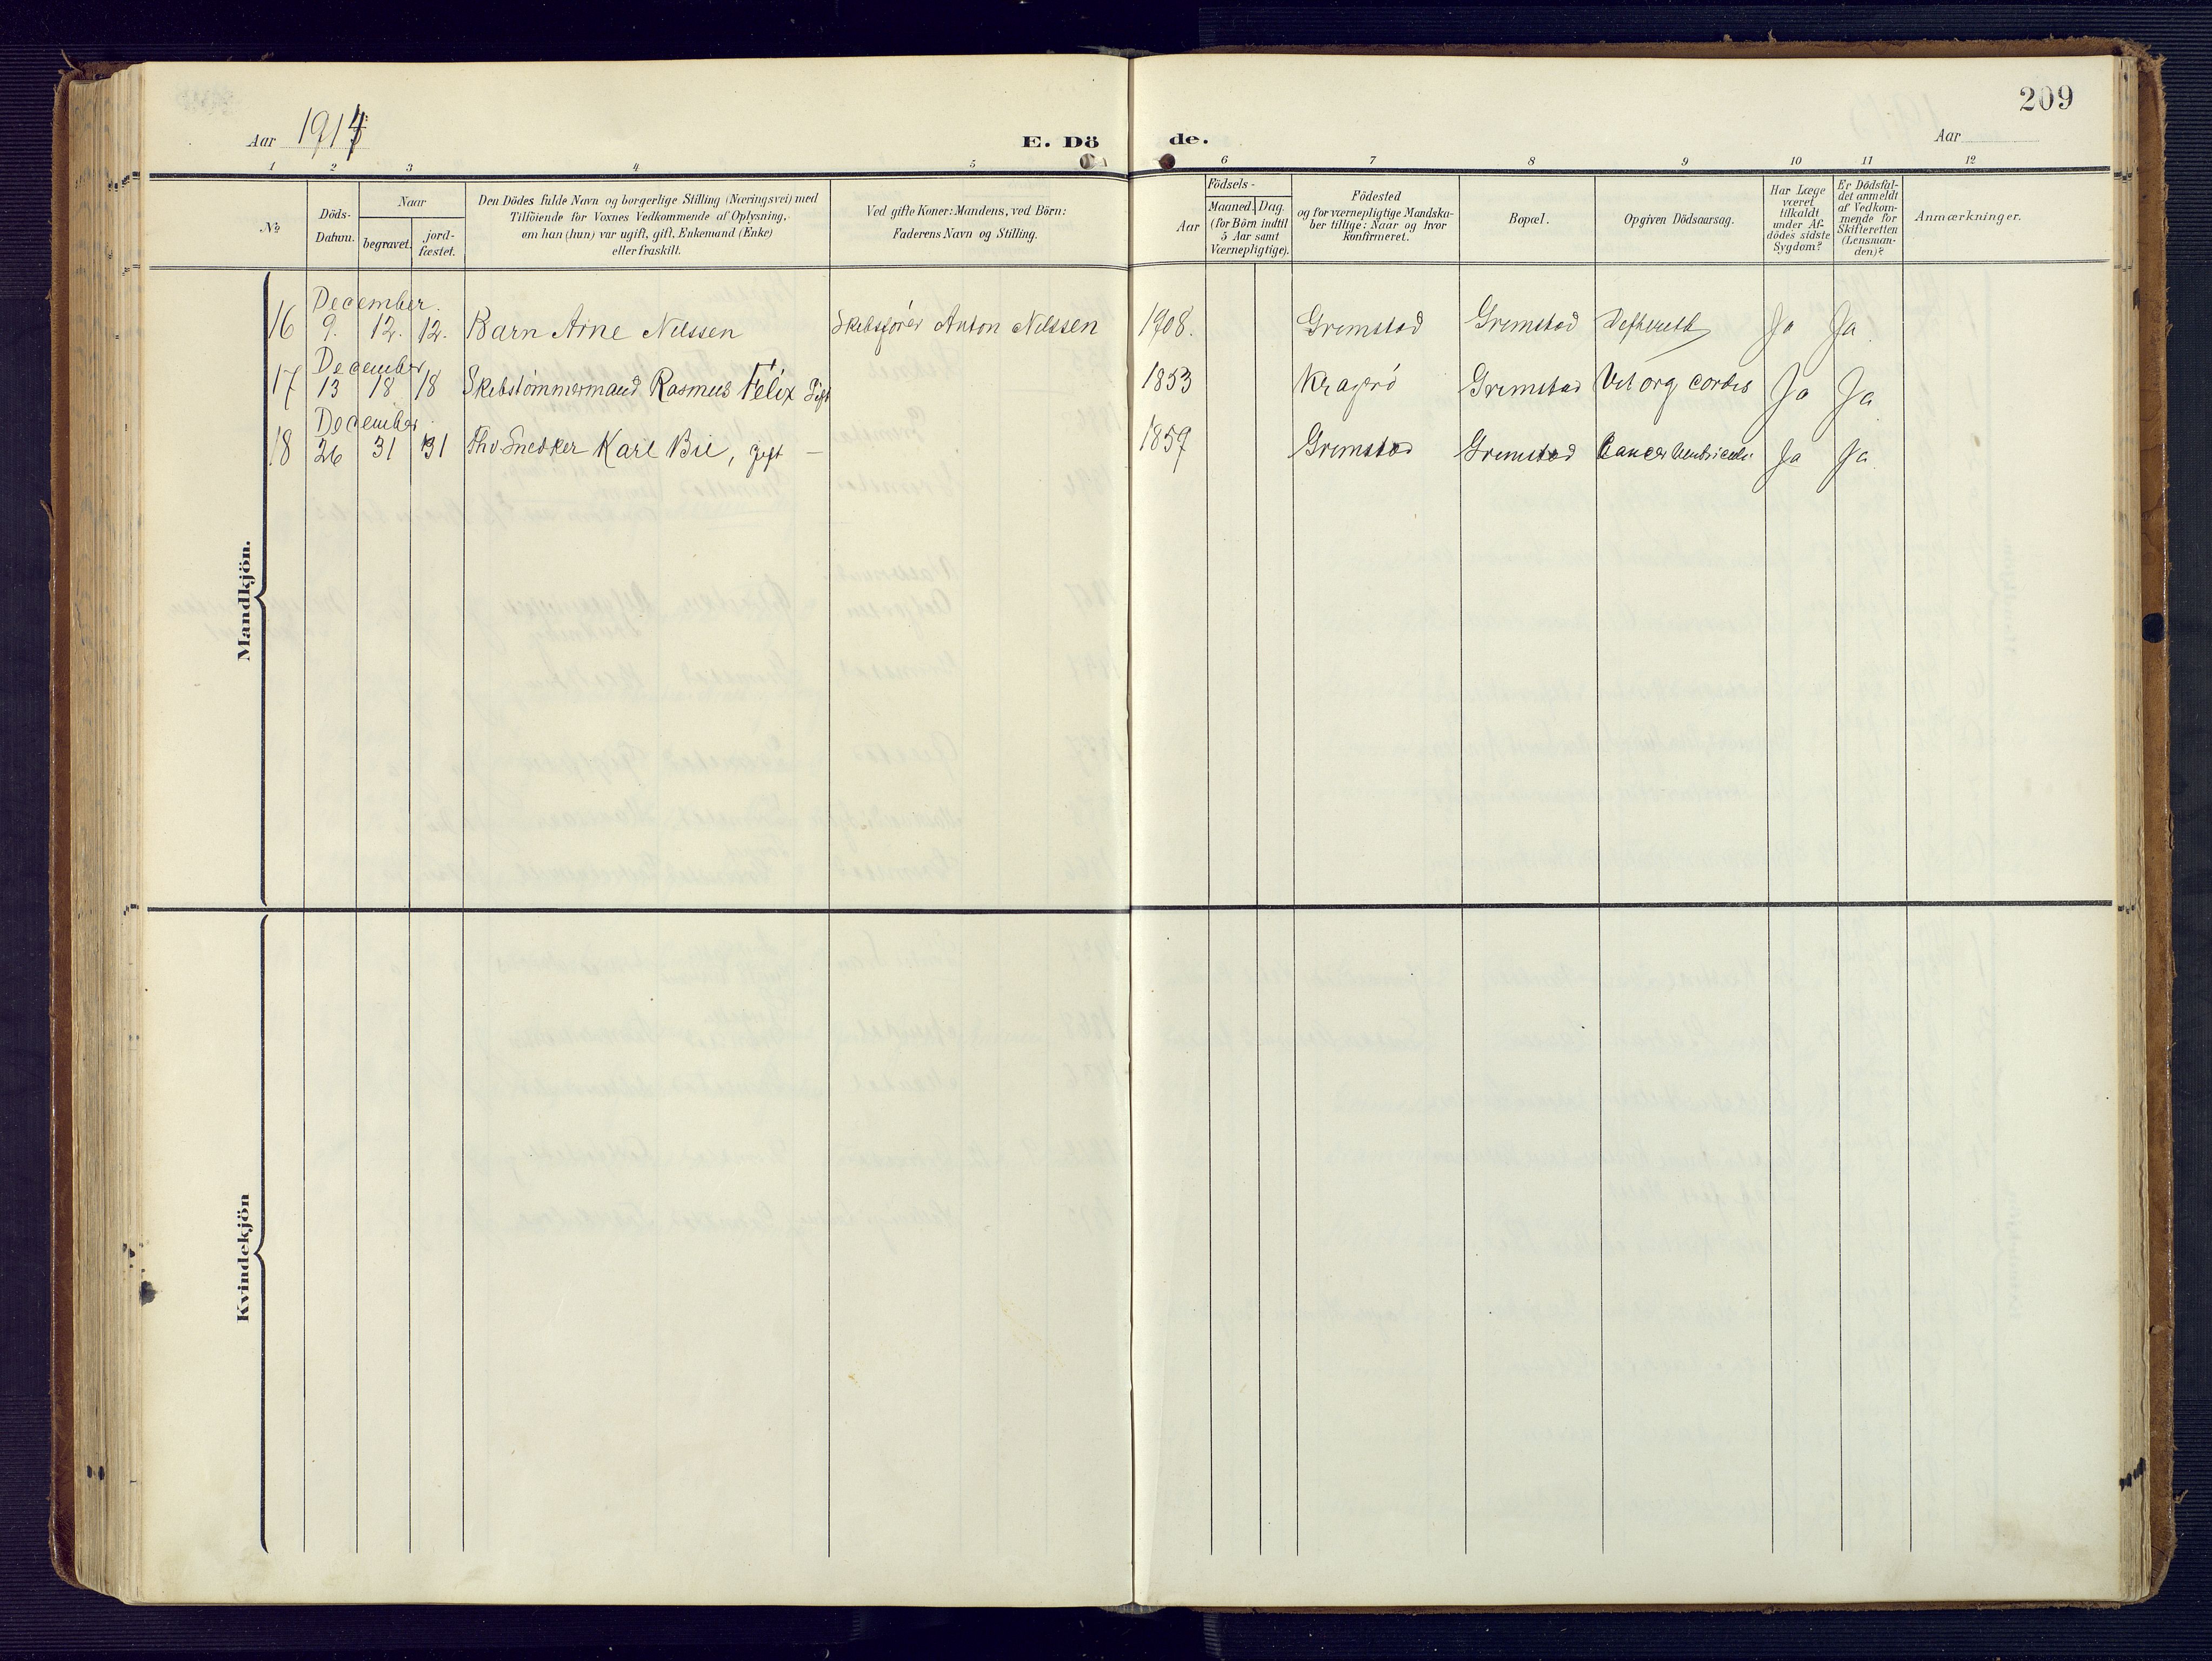 209
Aar 1914
E. Dö
de.
Aar
1 2 3 4 5 6 7 8 9 10 11 12
№
Döds-
Datum.
Naar
begravet.
jord-
fæstet.
Den Dödes fulde Navn og borgerlige Stilling (Næringsvei) med
Tilföiende for Voxnes Vedkommende af Oplysning,
om han (hun) var ugift, gift, Enkemand (Enke)
eller fraskilt.
Ved gifte Koner: Mandens, ved Börn:
Faderens Navn og Stilling.
Födsels-
Aar
Maaned. Dag.
(for Börn indtil
5 Aar samt
Værnepligtige).
Födested
og for værnepligtige Mandska-
ber tillige: Naar og hvor
konfirmeret.
Bopæl.
Opgiven Dödsaarsag.
Har Læge
været
tilkaldt
under Af-
dödes sidste
Sygdom?
Er Dödsfal-
det anmeldt
af Vedkom-
mende for
Skifteretten
(Lensman-
den)?
Anmærkninger.
Mandkjön.
December.
16 9. 12. 12. Barn Arne Nilssen Skibsfører Anton Nilssen 1908. Grimstad Grimstad Ja Ja
December
17 13 18 18 Skibstømmermand Rasmus Felix Gift 1853 Kragerø Grimstad Vit org cordis Ja Ja
December
18 26 31 31 Fhv Snedker Karl Bie, gift — 1859 Grimstad Grimstad Cancer Ventriculi Ja Ja
Kvindekjön